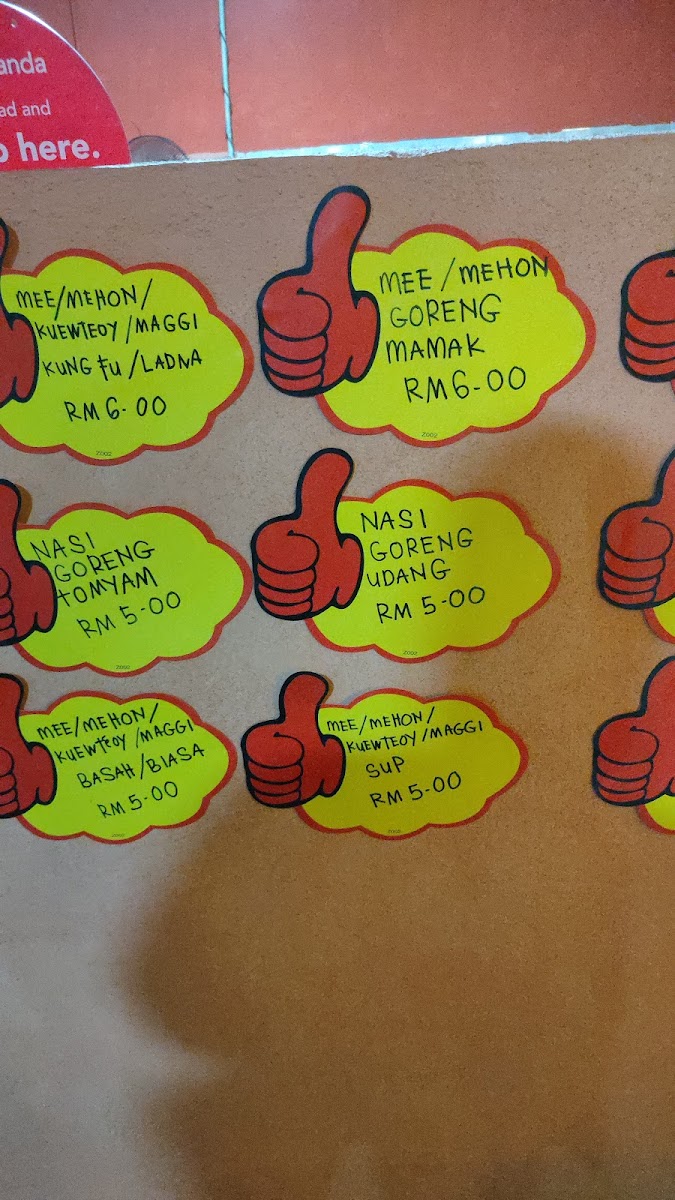 anda
ad and
here.
MEE/MEHON/
KUEWTEOY/MAGGI
KUNG FU/LADNA
RM 6-00
Z002
MEE/MEHON
GORENG
MAMAK
RM 6-00
Z002
NASI
GORENG
TOMYAM
RM 5-00
Z002
NASI
GORENG
UDANG
RM 5-00
Z002
MEE/MEHON/
KUEWTEOY/MAGGI
BASAH/BIASA
RM 5-00
Z002
MEE/MEHON/
KUEWTEOY/MAGGI
SUP
RM 5-00
Z002